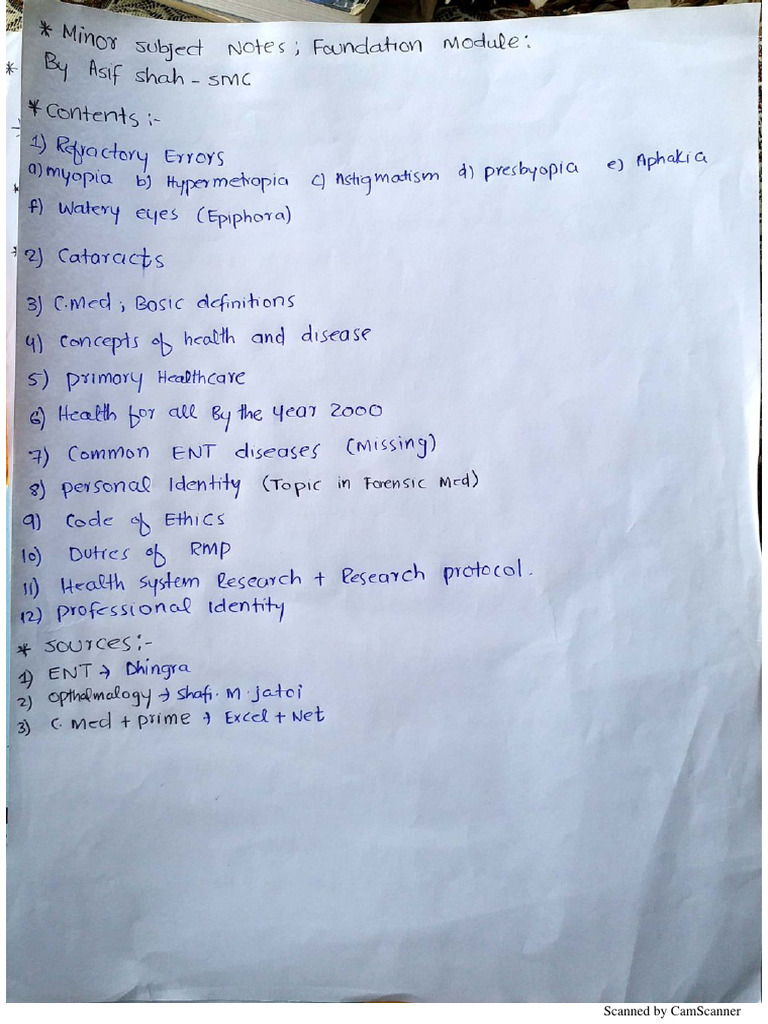 * Minor subject Notes ; Foundation Module :
By Asif shah - SMC
* Contents :-
1) Refractory Errors
a) myopia b) Hypermetropia c) Astigmatism d) presbyopia e) Aphakia
f) Watery eyes (Epiphora)
2) Cataracts
3) C.Med ; Basic definitions
4) Concepts of health and disease
5) primary Healthcare
6) Health for all By the year 2000
7) Common ENT diseases (Missing)
8) personal Identity (Topic in Forensic Med)
9) Code of Ethics
10) Duties of RMP
11) Health system Research + Research protocol.
12) professional Identity
* sources :-
1) ENT → Dhingra
2) opthalmalogy → shafi . M . jatoi
3) C. Med + prime → Excel + Net
Scanned by CamScanner